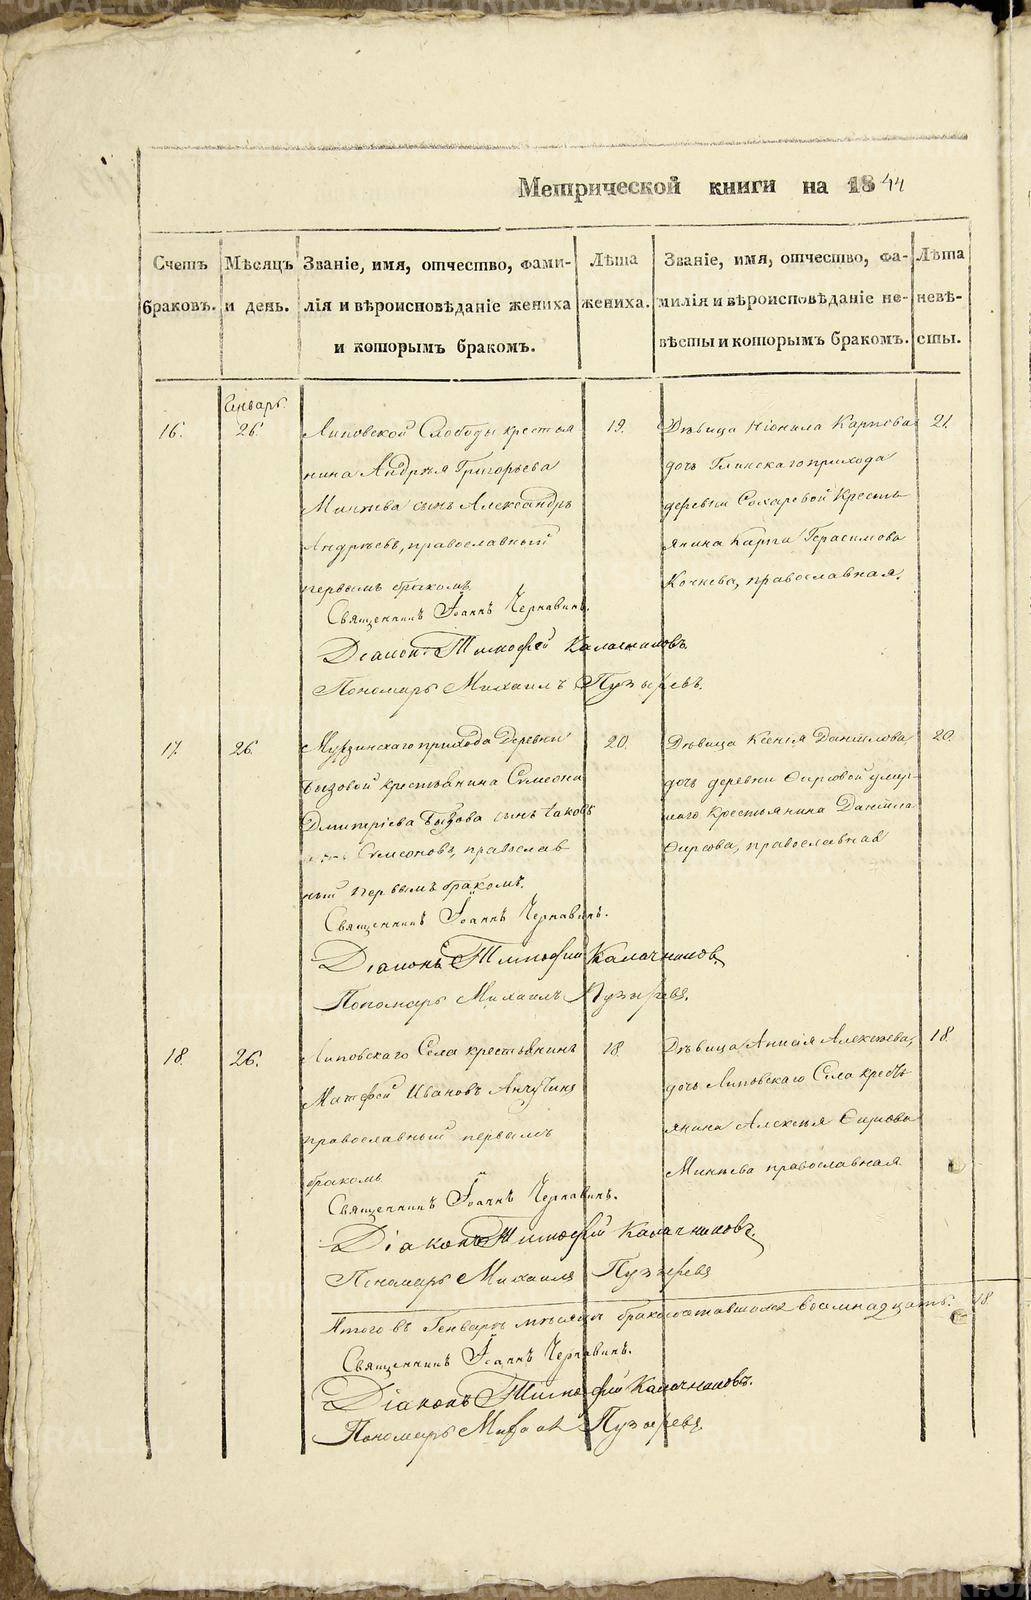 Метрической книги на 1844
Счетъ браковъ.
Мѣсяцъ и день.
Званіе, имя, отчество, фами-
лія и вѣроисповѣданіе жениха
и которымъ бракомъ.
Лѣта
жениха.
Званіе, имя, отчество, фа-
милія и вѣроисповѣданіе не-
вѣсты и которымъ бракомъ.
Лѣта
невѣ-
сты.
Генварь
16.
26.
Липовской Слободы крестья
нина Андрея Григорьева
Минѣева сынъ Александръ
Андреевъ, православный
первымъ бракомъ
19.
Дѣвица Неонила Карпова
дочь Глинскаго прихода
деревни Сохаревой Кресть
янина Карпа Герасимова
Кочнева, православная.
21.
Священникъ Іоаннъ Чернавинъ.
Діаконъ Тимофей Калачниковъ.
Пономарь Михаилъ Пузыревъ.
17.
26
Мурзинскаго прихода Деревни
Бызовой крестьянина Симеона
Дмитріева Бызова сынъ Іаковъ
Симеоновъ, православ
ный первымъ бракомъ.
20.
Дѣвица Ксенія Данилова,
дочь деревни Фирсовой умер-
шаго Крестьянина Данила
Фирсова, православная
20.
Священникъ Іоаннъ Чернавинъ.
Діаконъ Тимофей Калачниковъ.
Пономарь Михаилъ Пузыревъ.
18.
26.
Липовскаго Села крестьянинъ
Матфей Ивановъ Анчутинъ
православный первымъ
бракомъ
18.
Дѣвица Анисія Алексѣева,
дочь Липовскаго Села кресть
янина Алексѣя Фирсова
Минѣева православная
18.
Священникъ Іоаннъ Чернавинъ.
Діаконъ Тимофей Калачниковъ.
Пономарь Михаилъ Пузыревъ
Итого въ Генварѣ мѣсяцѣ бракосочетавшихся восмнадцать. 18.
Священникъ Іоаннъ Чернавинъ.
Діаконъ Тимофей Калачниковъ.
Пономарь Михаилъ Пузыревъ